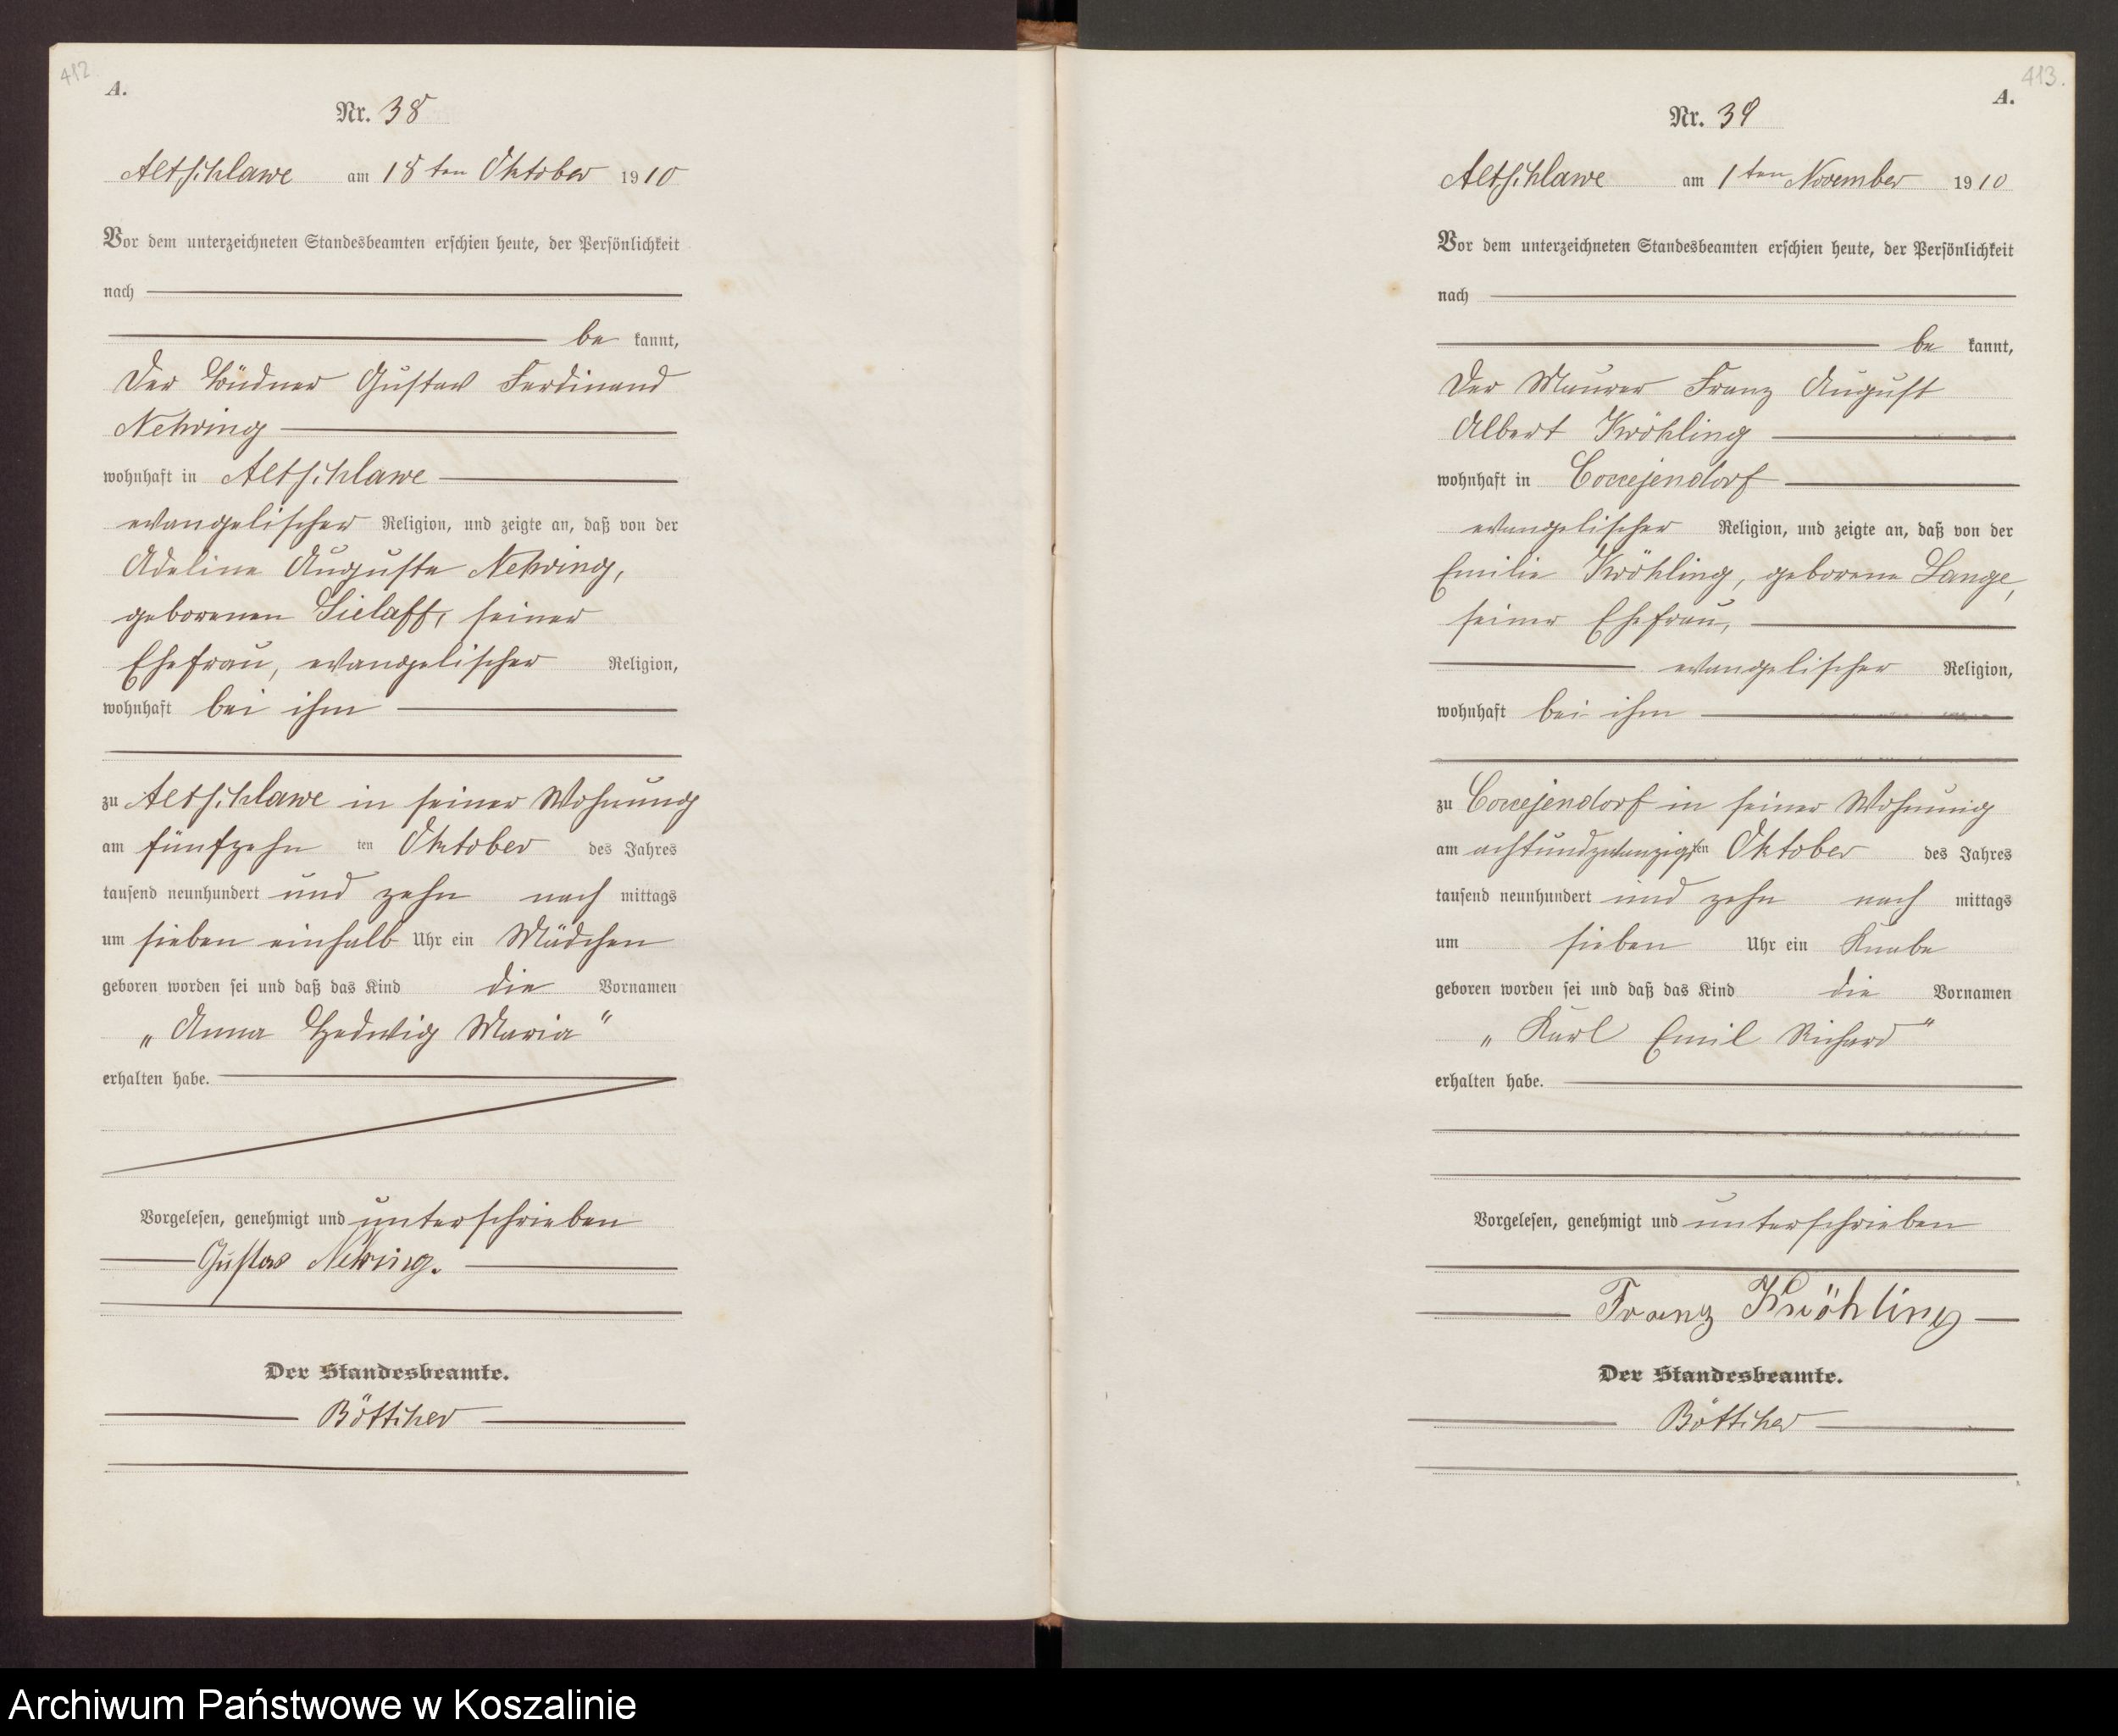 412
A.
Nr. 38
Altschlawe am 18ten Oktober 1910
Vor dem unterzeichneten Standesbeamten erschien heute, der Persönlichkeit
nach
be kannt,
der Büdner Gustav Ferdinand
Nehring
wohnhaft in Altschlawe
evangelischer Religion, und zeigte an, daß von der
Adeline Auguste Nehring,
geborenen Sielaff, seiner
Ehefrau, evangelischer Religion,
wohnhaft bei ihm
zu Altschlawe in seiner Wohnung
am fünfzehn ten Oktober des Jahres
tausend neunhundert und zehn nach mittags
um sieben einhalb Uhr ein Mädchen
geboren worden sei und daß das Kind die Vornamen
„Anna Hedwig Maria“
erhalten habe.
Vorgelesen, genehmigt und unterschrieben
Gustav Nehring.
Der Standesbeamte.
Böttcher
413.
A.
Nr. 39
Altschlawe am 1ten November 1910
Vor dem unterzeichneten Standesbeamten erschien heute, der Persönlichkeit
nach
be kannt,
der Maurer Franz August
Albert Kröhling
wohnhaft in Coccejendorf
evangelischer Religion, und zeigte an, daß von der
Emilie Kröhling, geborene Lange,
seiner Ehefrau,
evangelischer Religion,
wohnhaft bei ihm
zu Coccejendorf in seiner Wohnung
am achtundzwanzigsten Oktober des Jahres
tausend neunhundert und zehn nach mittags
um sieben Uhr ein Knabe
geboren worden sei und daß das Kind die Vornamen
„Karl Emil Richard“
erhalten habe.
Vorgelesen, genehmigt und unterschrieben
Franz Kröhling
Der Standesbeamte.
Böttcher
Archiwum Państwowe w Koszalinie